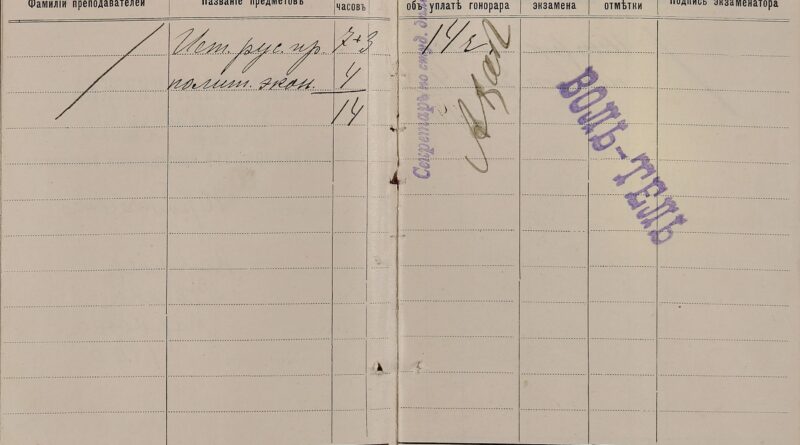 Фамиліи преподавателей
Названіе предметовъ
часовъ
объ уплатѣ гонорара
экзамена
отмѣтки
Подпись экзаменатора
Ист. рус. пр. 7+3
полит. экон. 4
14
14 ч.
Секретарь по студ.
ВОЛЬ-ТЕЛЬ